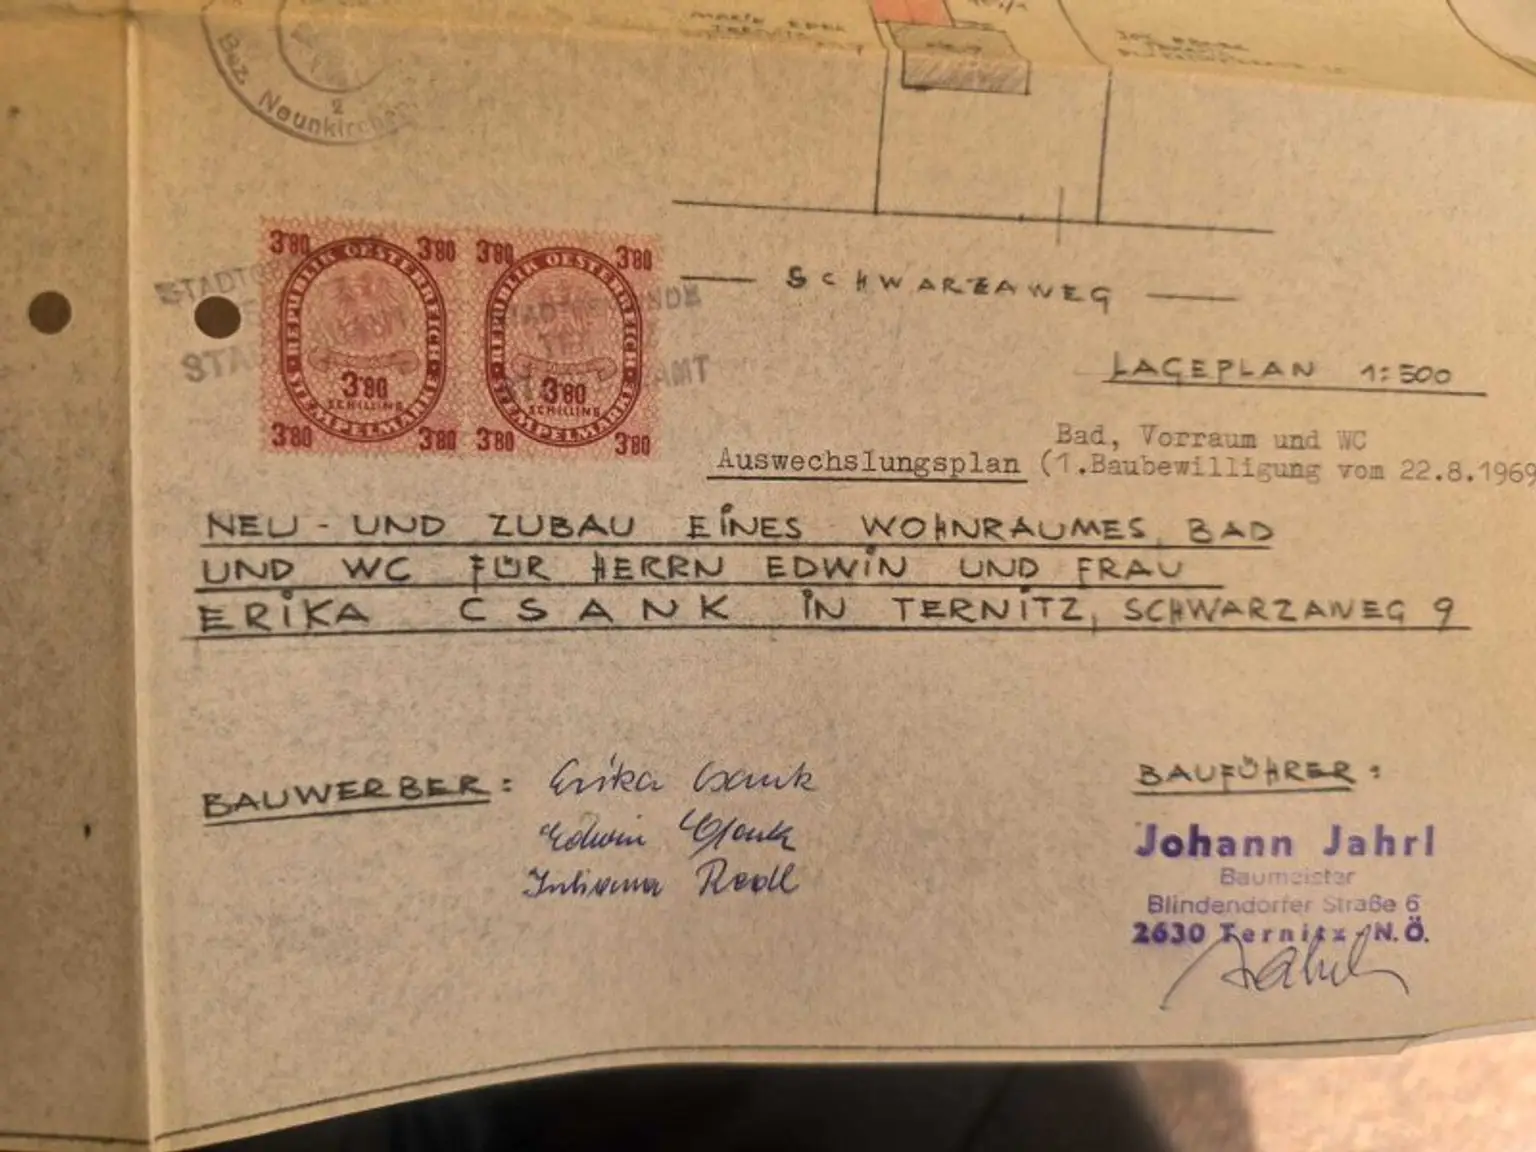 MARIE EDER
TERNITZ
Bez. Neunkirchen
2
3·80 3·80 3·80 3·80
REPUBLIK OESTERREICH REPUBLIK OESTERREICH
STEMPELMARKE STEMPELMARKE
3·80 3·80
SCHILLING SCHILLING
3·80 3·80 3·80 3·80
STADTGEMEINDE
AMT
SCHWARZAWEG
LAGEPLAN 1:500
Bad, Vorraum und WC
Auswechslungsplan (1.Baubewilligung vom 22.8.1969
NEU- UND ZUBAU EINES WOHNRAUMES, BAD
UND WC FÜR HERRN EDWIN UND FRAU
ERIKA CSANK IN TERNITZ, SCHWARZAWEG 9
BAUWERBER: Erika Csank
Edwin Csank
Juliana Redl
BAUFÜHRER:
Johann Jahrl
Baumeister
Blindendorfer Straße 6
2630 Ternitz, N.Ö.